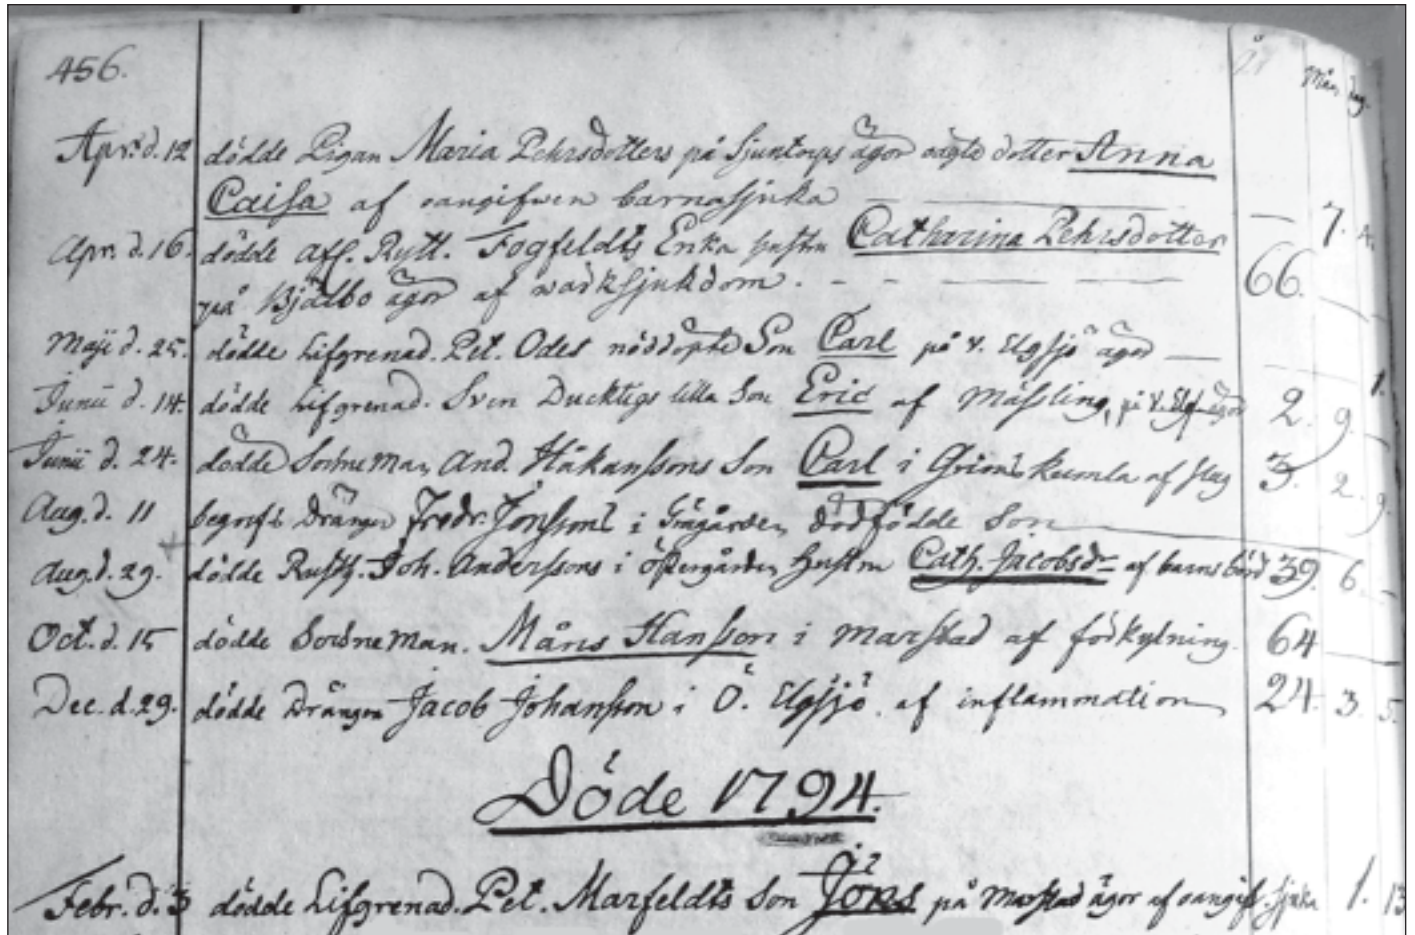 456.
år Mån. dag.
Apr. d. 12 dödde Pigan Maria Pehrsdotters på Sjuntorps ägor oägta dotter Anna
Caisa af oangifwen barnasjuka — 7.
Apr. d. 16. dödde afs. Rytt. Fogfeldts Enka hustru Catharina Pehrsdotter
på Bjälbo ägor af wärksjukdom. 66.
Maji d. 25. dödde Lifgrenad. Pet. Odes nöddöpte Son Carl på v. Elgsjö ägor — 1.
Junii d. 14. dödde Lifgrenad. Sven Ducktigs lilla Son Eric af Mässling, på V. Elgs. ägor 2. 9.
Junii d. 24. dödde SockneMan And. Håkanssons Son Carl i Kumla af slag 3. 2. 9.
Aug. d. 11 begrofs Drängen Fredr. Jonssons i dödfödde Son
Aug. d. 29. dödde Rusth. Joh. Anderssons i Östergården hustru Cath. Jacobsdr af barnsbörd 39. 6.
Oct. d. 15 dödde SockneMan. Måns Hansson i Marstad af förkylning. 64
Dec. d. 29. dödde Drängen Jacob Johansson i Ö. Elgsjö af inflammation 24. 3. 5.
Döde 1794.
Febr. d. 3 dödde Lifgrenad. Pet. Marfeldts Son Jöns på Marstad ägor af oangifv. sjuka 1. 13